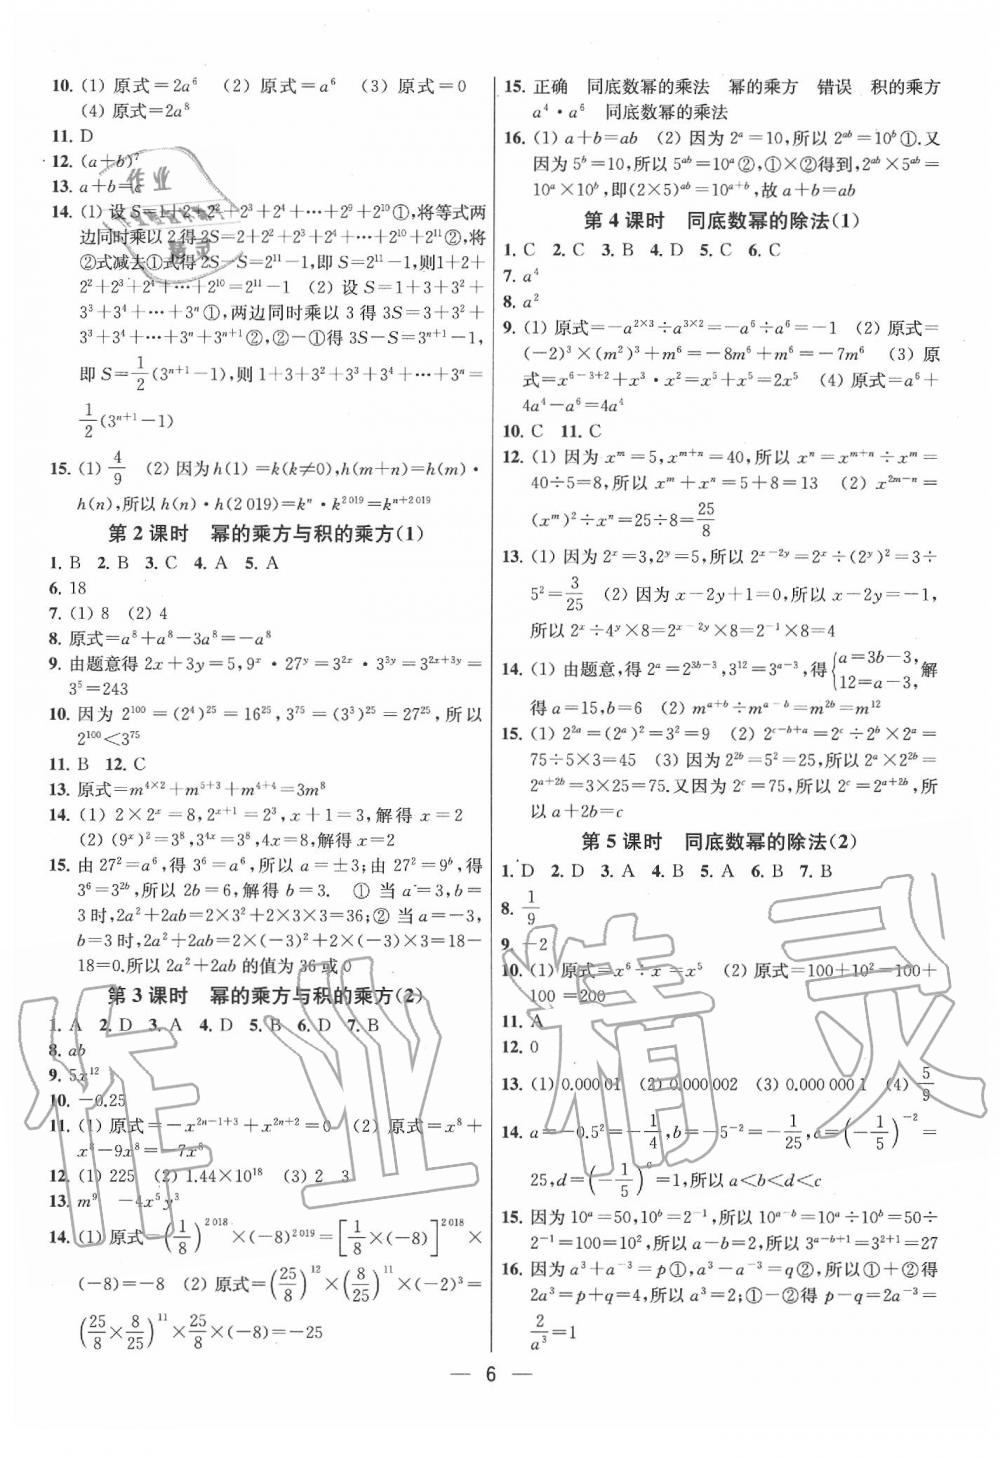 10. (1) 原式=2a⁶ (2) 原式=a⁶ (3) 原式=0
(4) 原式=2a⁸
11. D
12. (a+b)⁷
13. a+b=c
14. (1) 设 S=1+2+2²+2³+2⁴+…+2⁹+2¹⁰①,将等式两
边同时乘以 2 得 2S=2+2²+2³+2⁴+…+2¹⁰+2¹¹②,将
②式减去①式得 2S-S=2¹¹-1,即 S=2¹¹-1,则1+2+
2²+2³+2⁴+…+2¹⁰=2¹¹-1 (2) 设 S=1+3+3²+
3³+3⁴+…+3ⁿ①,两边同时乘以 3 得 3S=3+3²+
3³+3⁴+…+3ⁿ+3ⁿ⁺¹②,②-①得3S-S=3ⁿ⁺¹-1,
即 S=1/2(3ⁿ⁺¹-1),则 1+3+3²+3³+3⁴+…+3ⁿ=
1/2(3ⁿ⁺¹-1)
15. (1) 4/9 (2) 因为 h(1)=k(k≠0),h(m+n)=h(m)·
h(n),所以 h(n)·h(2 019)=kⁿ·k²⁰¹⁹=kⁿ⁺²⁰¹⁹
第 2 课时 幂的乘方与积的乘方(1)
1. B 2. B 3. C 4. A 5. A
6. 18
7. (1) 8 (2) 4
8. 原式=a⁸+a⁸-3a⁸=-a⁸
9. 由题意得 2x+3y=5,9ˣ·27ʸ=3²ˣ·3³ʸ=3²ˣ⁺³ʸ=
3⁵=243
10. 因为 2¹⁰⁰=(2⁴)²⁵=16²⁵,3⁷⁵=(3³)²⁵=27²⁵,所以
2¹⁰⁰<3⁷⁵
11. B 12. C
13. 原式=m⁴ˣ²+m⁵⁺³+m⁴⁺⁴=3m⁸
14. (1) 2×2ˣ=8,2ˣ⁺¹=2³,x+1=3,解得 x=2
(2) (9ˣ)²=3⁸,3⁴ˣ=3⁸,4x=8,解得 x=2
15. 由 27²=a⁶,得 3⁶=a⁶,所以 a=±3;由 27²=9ᵇ,得
3⁶=3²ᵇ,所以 2b=6,解得 b=3. ① 当 a=3,b=
3 时,2a²+2ab=2×3²+2×3×3=36;② 当 a=-3,
b=3 时,2a²+2ab=2×(-3)²+2×(-3)×3=18-
18=0.所以 2a²+2ab 的值为 36 或 0
第 3 课时 幂的乘方与积的乘方(2)
1. A 2. D 3. A 4. D 5. B 6. D 7. B
8. ab
9. 5x¹²
10. -0.25
11. (1) 原式=-x²ⁿ⁻¹⁺³+x²ⁿ⁺²=0 (2) 原式=x⁸+
x⁸-9x⁸=-7x⁸
12. (1) 225 (2) 1.44×10¹⁸ (3) 2 3
13. m⁹ -4x⁵y³
14. (1) 原式=(1/8)²⁰¹⁸×(-8)²⁰¹⁹=[1/8×(-8)]²⁰¹⁸×
(-8)=-8 (2) 原式=(25/8)¹²×(8/25)¹¹×(-2)³=
(25/8×8/25)¹¹×25/8×(-8)=-25
15. 正确 同底数幂的乘法 幂的乘方 错误 积的乘方
a⁴·a⁶ 同底数幂的乘法
16. (1) a+b=ab (2) 因为 2ᵃ=10,所以 2ᵃᵇ=10ᵇ①.又
因为 5ᵇ=10,所以 5ᵃᵇ=10ᵃ②,①×②得到,2ᵃᵇ×5ᵃᵇ=
10ᵃ×10ᵇ,即(2×5)ᵃᵇ=10ᵃ⁺ᵇ,故 a+b=ab
第 4 课时 同底数幂的除法(1)
1. C 2. C 3. B 4. D 5. C 6. C
7. a⁴
8. a²
9. (1) 原式=-a²ˣ³÷a³ˣ²=-a⁶÷a⁶=-1 (2) 原式=
(-2)³×(m²)³+m⁶=-8m⁶+m⁶=-7m⁶ (3) 原
式=x⁶⁻³⁺²+x³·x²=x⁵+x⁵=2x⁵ (4) 原式=a⁶+
4a⁴-a⁶=4a⁴
10. C 11. C
12. (1) 因为 xᵐ=5,xᵐ⁺ⁿ=40,所以 xⁿ=xᵐ⁺ⁿ÷xᵐ=
40÷5=8,所以 xᵐ+xⁿ=5+8=13 (2) x²ᵐ⁻ⁿ=
(xᵐ)²÷xⁿ=5²÷8=25÷8=25/8
13. (1) 因为 2ˣ=3,2ʸ=5,所以 2ˣ⁻²ʸ=2ˣ÷(2ʸ)²=3÷
5²=3/25 (2) 因为 x-2y+1=0,所以 x-2y=-1,
所以 2ˣ÷4ʸ×8=2ˣ⁻²ʸ×8=2⁻¹×8=4
14. (1) 由题意,得 2ᵃ=2³ᵇ⁻³,3¹²=3ᵃ⁻³,得{a=3b-3, 12=a-3,解
得 a=15,b=6 (2) mᵃ⁺ᵇ÷mᵃ⁻ᵇ=m²ᵇ=m¹²
15. (1) 2²ᵃ=(2ᵃ)²=3²=9 (2) 2ᶜ⁻ᵇ⁺ᵃ=2ᶜ÷2ᵇ×2ᵃ=
75÷5×3=45 (3) 因为 2²ᵇ=5²=25,所以 2ᵃ×2²ᵇ=
2ᵃ⁺²ᵇ=3×25=75.又因为 2ᶜ=75,所以 2ᶜ=2ᵃ⁺²ᵇ,所
以 a+2b=c
第 5 课时 同底数幂的除法(2)
1. D 2. D 3. A 4. B 5. A 6. B 7. B
8. 1/9
9. -2
10. (1) 原式=x⁶÷x=x⁵ (2) 原式=100+10²=100+
100=200
11. A
12. 0
13. (1) 0.000 01 (2) 0.000 002 (3) 0.000 000 1 (4) 5/9
14. a=-0.5²=-1/4,b=-5⁻²=-1/25,c=(-1/5)⁻²=
25,d=(-1/5)⁰=1,所以 a<b<d<c
15. 因为 10ᵃ=50,10ᵇ=2⁻¹,所以 10ᵃ⁻ᵇ=10ᵃ÷10ᵇ=50÷
2⁻¹=100=10²,所以 a-b=2,所以 3ᵃ⁻ᵇ⁺¹=3²⁺¹=27
16. 因为 a³+a⁻³=p①,a³-a⁻³=q②,所以①+②得
2a³=p+q=4,所以 a³=2;①-②得 p-q=2a⁻³=
2/a³=1
6
作业精灵